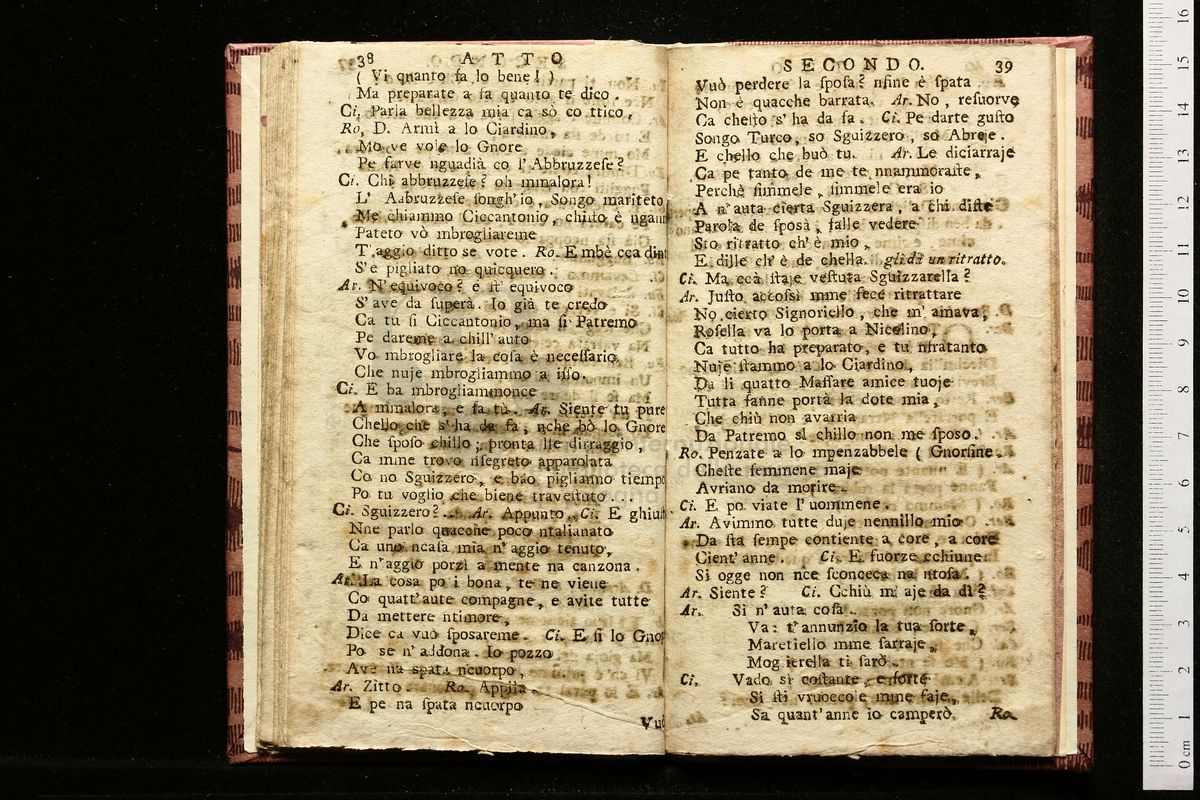 38 ATTO
( Vi quanto fa lo bene! )
Ma preparate a fa quanto te dico.
Ci. Parla bellezza mia ca sò co ttico,
Ro, D. Armì a lo Ciardino,
Mo ve vole lo Gnore
Pe farve nguadià co l'Abbruzzese?
Ci. Chi abbruzzese? oh mmalora!
L' Aabruzzese songh'io, Songo mariteto
Me chiammo Ciccantonio, chisto è ngann
Pateto vò mbrogliareme
T'aggio ditto se vote. Ro. E mbè cca dint
S'è pigliato no quicquero.
Ar. N'equivoco? e st' equivoco
S'ave da superà. Io già te credo
Ca tu si Ciccantonio, ma si Patremo
Pe dareme a chill'auto
Vo mbrogliare la cosa è necessario,
Che nuje mbrogliammo a isso.
Ci. E ba mbrogliammonce
A mmalora, e fa tù. Ar. Siente tu pure
Chello che s'ha da fa, nche bò lo Gnore
Che sposo chillo; pronta lle dirraggio,
Ca mme trovo nsegreto apparolata
Co no Sguizzero, e bao piglianno tiempo
Po tu voglio che biene travestuto...
Ci. Sguizzero? Ar. Appunto. Ci. E ghiust
Nne parlo quacche poco ntalianato
Ca uno ncasa mia n'aggio tenuto,
E n'aggio porzì a mente na canzona.
Ar. La cosa po i bona, te ne viene
Co quatt'aute compagne, e avite tutte
Da mettere ntimore,
Dice ca vuò sposareme. Ci. E si lo Gnor
Po se n'addona. Io pozzo
Ave na spata ncuorpo,
Ar. Zitto Ro. Appila.
E pe na spata ncuorpo
Vuò
SECONDO. 39
Vuò perdere la sposa? nfine è spata
Non è quacche barrata. Ar. No, resuorve
Ca chello s'ha da fa. Ci. Pe darte gusto
Songo Turco, so Sguizzero, so Abreje.
E chello che buò tu. Ar. Le diciarraje
Ca pe tanto de me te nnammoraste,
Perchè simmele, simmele era io
A n'auta cierta Sguizzera, a chi diste
Parola de sposà, falle vedere
Sto ritratto ch'è mio,
E dille ch'è de chella. gli dà un ritratto.
Ci. Ma ccà staje vestuta Sguizzarella?
Ar. Justo accossì mme fece ritrattare
No cierto Signoriello, che m'amava;
Rosella va lo porta a Nicolino,
Ca tutto ha preparato, e tu nfratanto
Nuje stammo a lo Ciardino,
Da li quatto Massare amice tuoje
Tutta fanne portà la dote mia,
Che chiù non avarria
Da Patremo si chillo non me sposo.
Ro. Penzate a lo mpenzabbele ( Gnorsine.
Cheste femmene maje
Avriano da morire.
Ci. E po viate l'uommene.
Ar. Avimmo tutte duje nennillo mio
Da sta sempe contiente a core, a core
Cient'anne. Ci. E fuorze cchiune.
Si ogge non nce sconceca na ntosa.
Ar. Siente? Ci. Cchiù m'aje da dì?
Ar. Si n'auta cosa.
Va: t'annunzio la tua sorte,
Maretiello mme sarraje,
Mogliierella ti sarò.
Ci. Vado sì costante, e forte
Si sti vruoccole mme faje,
Sa quant'anne io camperò. Ro.